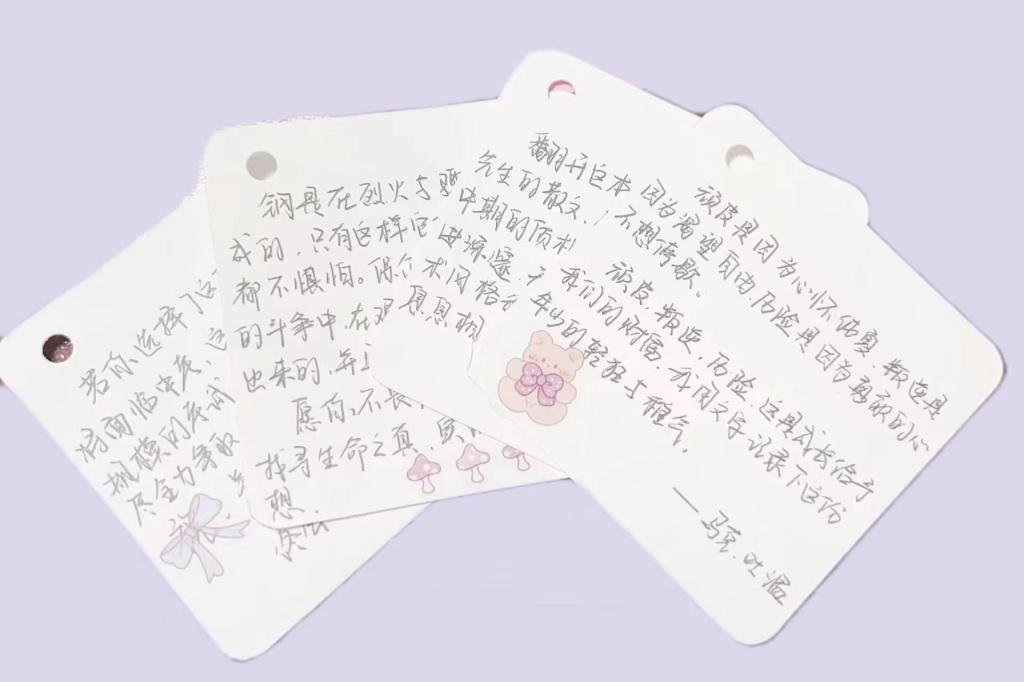 若你选择了这
将面临中庆、这
规模的应试
尽全力争取
钢是在烈火与
成的，只有这样它
都不惧怕。
的斗争中，在艰
出来的，并且
愿你，不长，
找寻生命之真、
想。
翻开这本
先生的散文，
中期的顶
进深邃，
术风格
恩恩相
顽皮是因为心怀纯真，叛逆是
因为渴望自由，历险是因为勇敢的心
不想停歇。
顽皮，叛逆，历险，这是成长给予
我们的财富，我用文字记录下这份
年少的轻狂与稚气。
——马克·吐温